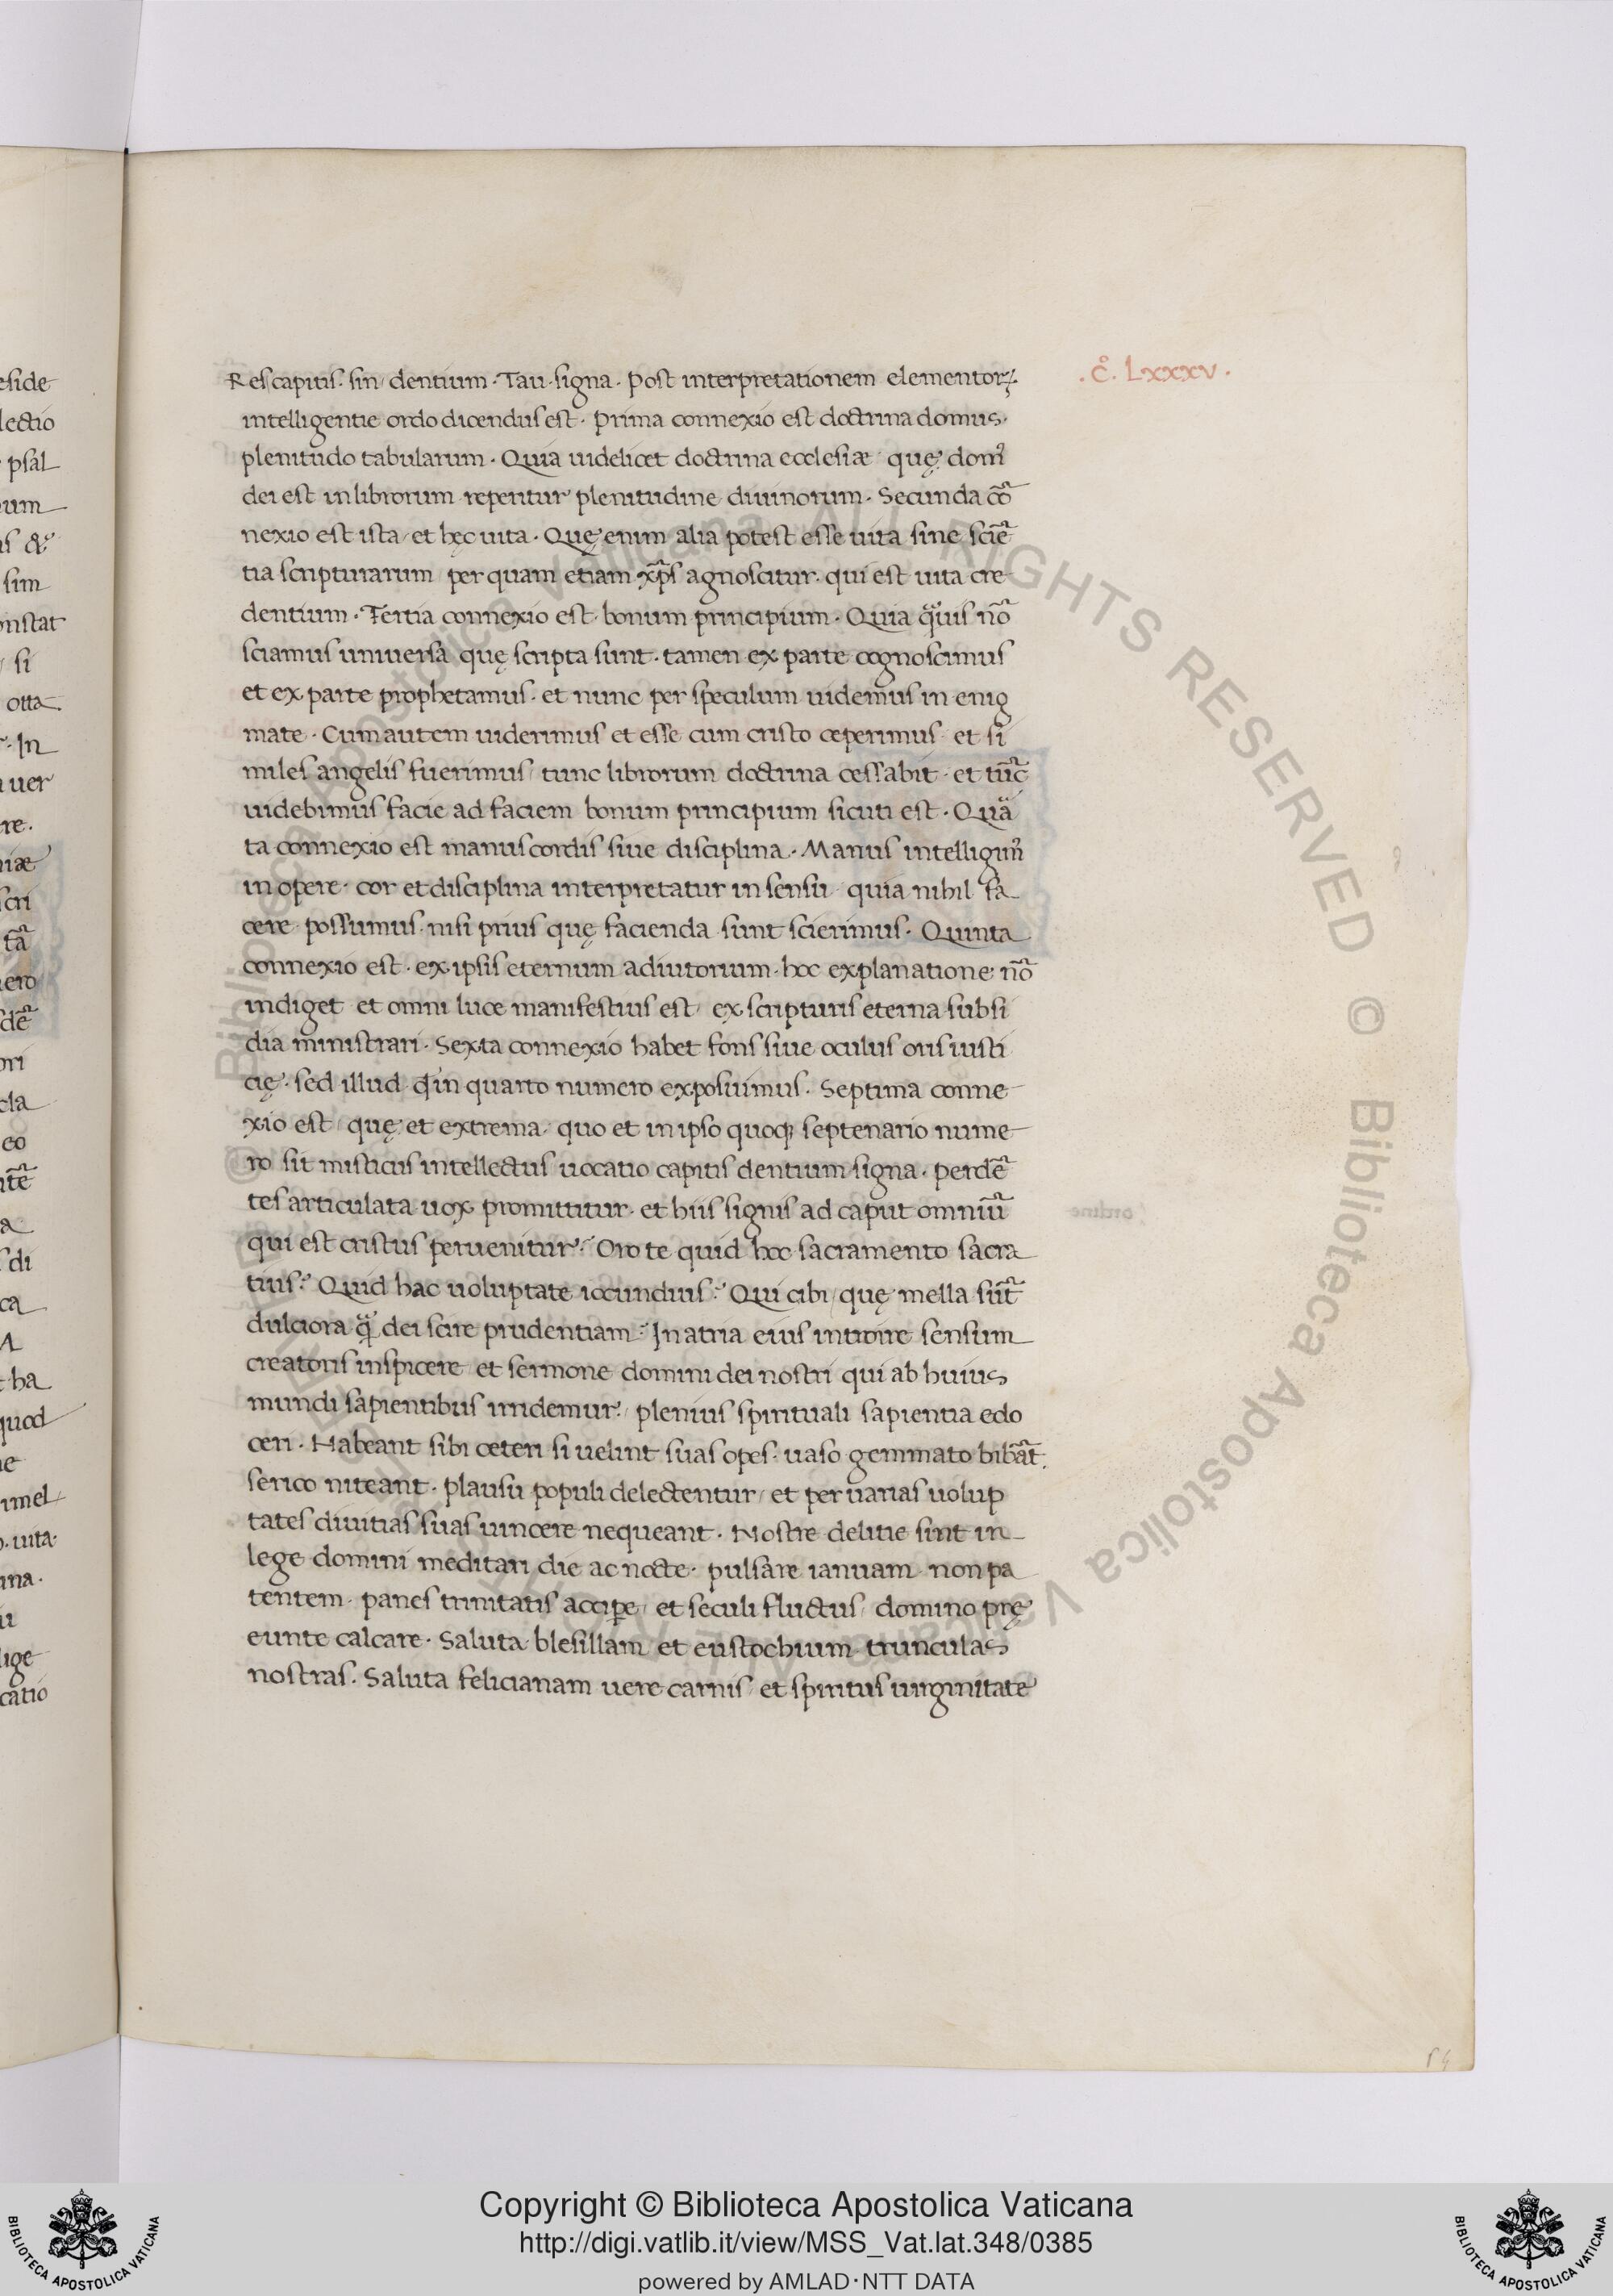 .c̊. Lxxxv.
Res capitis. sin dentium. Tau. signa. Post interpretationem elementoꝝ.
intelligentie ordo dicendus est. Prima connexio est doctrina domus.
plenitudo tabularum. Quia uidelicet doctrina ecclesiæ quę domꝰ
dei est in librorum reperitur plenitudine diuinorum. Secunda cō
nexio est ista et hęc uita. Quę enim alia potest esse uita sine sciē
tia scripturarum per quam etiam xp̄s agnoscitur. qui est uita cre
dentium. Tertia connexio est bonum principium. Quia q̄uis nō
sciamus uniuersa quę scripta sunt. tamen ex parte cognoscimus
et ex parte prophetamus. et nunc per speculum uidemus in enig
mate. Cum autem uiderimus et esse cum cristo ceperimus et si
miles angelis fuerimus tunc librorum doctrina cessabit. et tūc
uidebimus facie ad faciem bonum principium sicuti est. Quä
ta connexio est manus cordis siue disciplina. Manus intelligimꝰ
in opere. cor et disciplina interpretatur in sensu quia nihil fa
cere possumus. nisi prius quę facienda sunt scierimus. Quinta
connexio est. ex ipsis eternum adiutorium. hoc explanatione nō
indiget et omni luce manifestius est ex scripturis eterna subsi
dia ministrari. Sexta connexio habet fons siue oculus oris iusti
cię. sed illud qͥ in quarto numero exposuimus. Septima conne
xio est quę et extrema quo et in ipso quoqꝫ septenario nume
ro sit misticus intellectus uocatio capitis dentium signa. Per dē
tes articulata uox promittitur. et hiis signis ad caput omniū
qui est cristus peruenitur. Oro te quid hoc sacramento sacra
tius? Quid hac uoluptate iocundius? Qui cibi quę mella sūt
dulciora q̄ dei scire prudentiam? In atria eius introire sensum
creatoris inspicere et sermone domini dei nostri qui ab huius
mundi sapientibus irridemur? plenius spirituali sapientia edo
ceri. Habeant sibi ceteri si uelint suas opes. uaso gemmato bibāt.
serico niteant. plausu populi delectentur et per uarias uolup
tates diuitias suas uincere nequeant. Nostre delitie sint in
lege domini meditari die ac nocte. pulsare ianuam non pa
tentem. panes trinitatis accipe et seculi fluctus domino prę
eunte calcare. Saluta blesillam et eustochium trunculas
nostras. Saluta felicianam uere carnis et spiritus uirginitate
© Biblioteca Apostolica Vaticana ALL RIGHTS RESERVED © Biblioteca Apostolica Vaticana
Copyright © Biblioteca Apostolica Vaticana
http://digi.vatlib.it/view/MSS_Vat.lat.348/0385
powered by AMLAD・NTT DATA
BIBLIOTECA APOSTOLICA VATICANA
BIBLIOTECA APOSTOLICA VATICANA